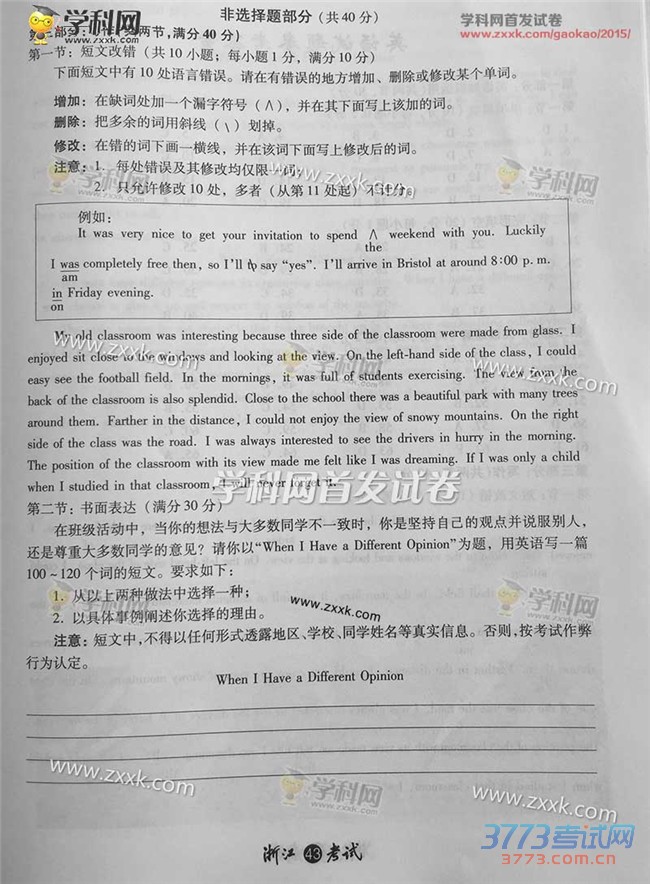 非选择题部分（共40分）
学科网首发试卷
www.zxxk.com/gaokao/2015/
学科网
www.zxxk.com
两节，满分40分）
第一节：短文改错（共10小题；每小题1分，满分10分）
下面短文中有10处语言错误。请在有错误的地方增加、删除或修改某个单词。
增加：在缺词处加一个漏字符号（∧），并在其下面写上该加的词。
删除：把多余的词用斜线（\）划掉。
修改：在错的词下画一横线，并在该词下面写上修改后的词。
注意：1. 每处错误及其修改均仅限一词；
2. 只允许修改10处，多者（从第11处起）不计分。
学科网
学科网
例如：
It was very nice to get your invitation to spend ∧ weekend with you. Luckily
the
I was completely free then, so I'll to say “yes”. I'll arrive in Bristol at around 8:00 p. m.
am
in Friday evening.
on
My old classroom was interesting because three side of the classroom were made from glass. I
enjoyed sit close to the windows and looking at the view. On the left-hand side of the class, I could
easy see the football field. In the mornings, it was full of students exercising. The view from the
back of the classroom is also splendid. Close to the school there was a beautiful park with many trees
around them. Farther in the distance, I could not enjoy the view of snowy mountains. On the right
side of the class was the road. I was always interested to see the drivers in hurry in the morning.
The position of the classroom with its view made me felt like I was dreaming. If I was only a child
when I studied in that classroom, I will never forget it.
www.zxxk.com
学科网
www.zxxk.com
学科网首发试卷
第二节：书面表达（满分30分）
在班级活动中，当你的想法与大多数同学不一致时，你是坚持自己的观点并说服别人，
还是尊重大多数同学的意见？请你以“When I Have a Different Opinion”为题，用英语写一篇
100～120个词的短文。要求如下：
1. 从以上两种做法中选择一种；
2. 以具体事例阐述你选择的理由。
www.zxxk.com
注意：短文中，不得以任何形式透露地区、学校、同学姓名等真实信息。否则，按考试作弊
行为认定。
When I Have a Different Opinion
www.zxxk.com
学科网
www.zxxk.com
浙江 43 考试
3773考试网
3773.com.cn